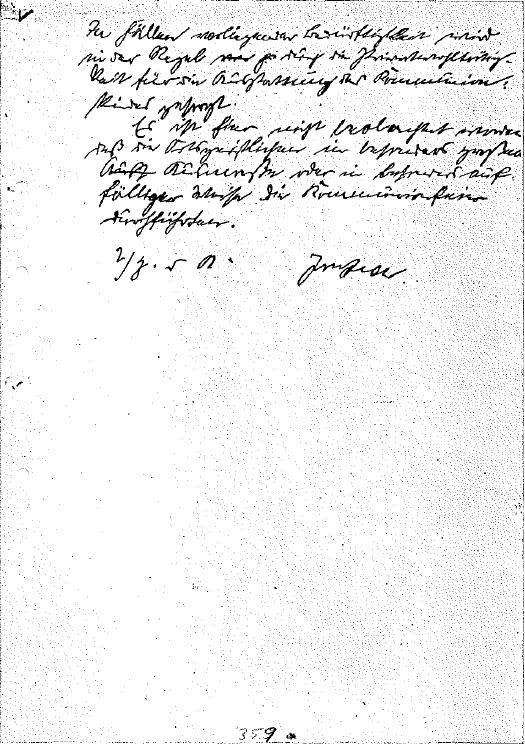 In Fällen vorliegender Bedürftigkeit wird
in der Regel nur ja durch die Privatwohltätig-
keit für die Ausstattung des Kommunion-
kindes gesorgt.
Es ist hier nicht beobachtet worden
daß die Ortsgeistlichen in besonders großem
Ausmaße oder in besonders auf
fälliger Weise die Kommunionfeier
durchführten.
2/ z. d A.
359